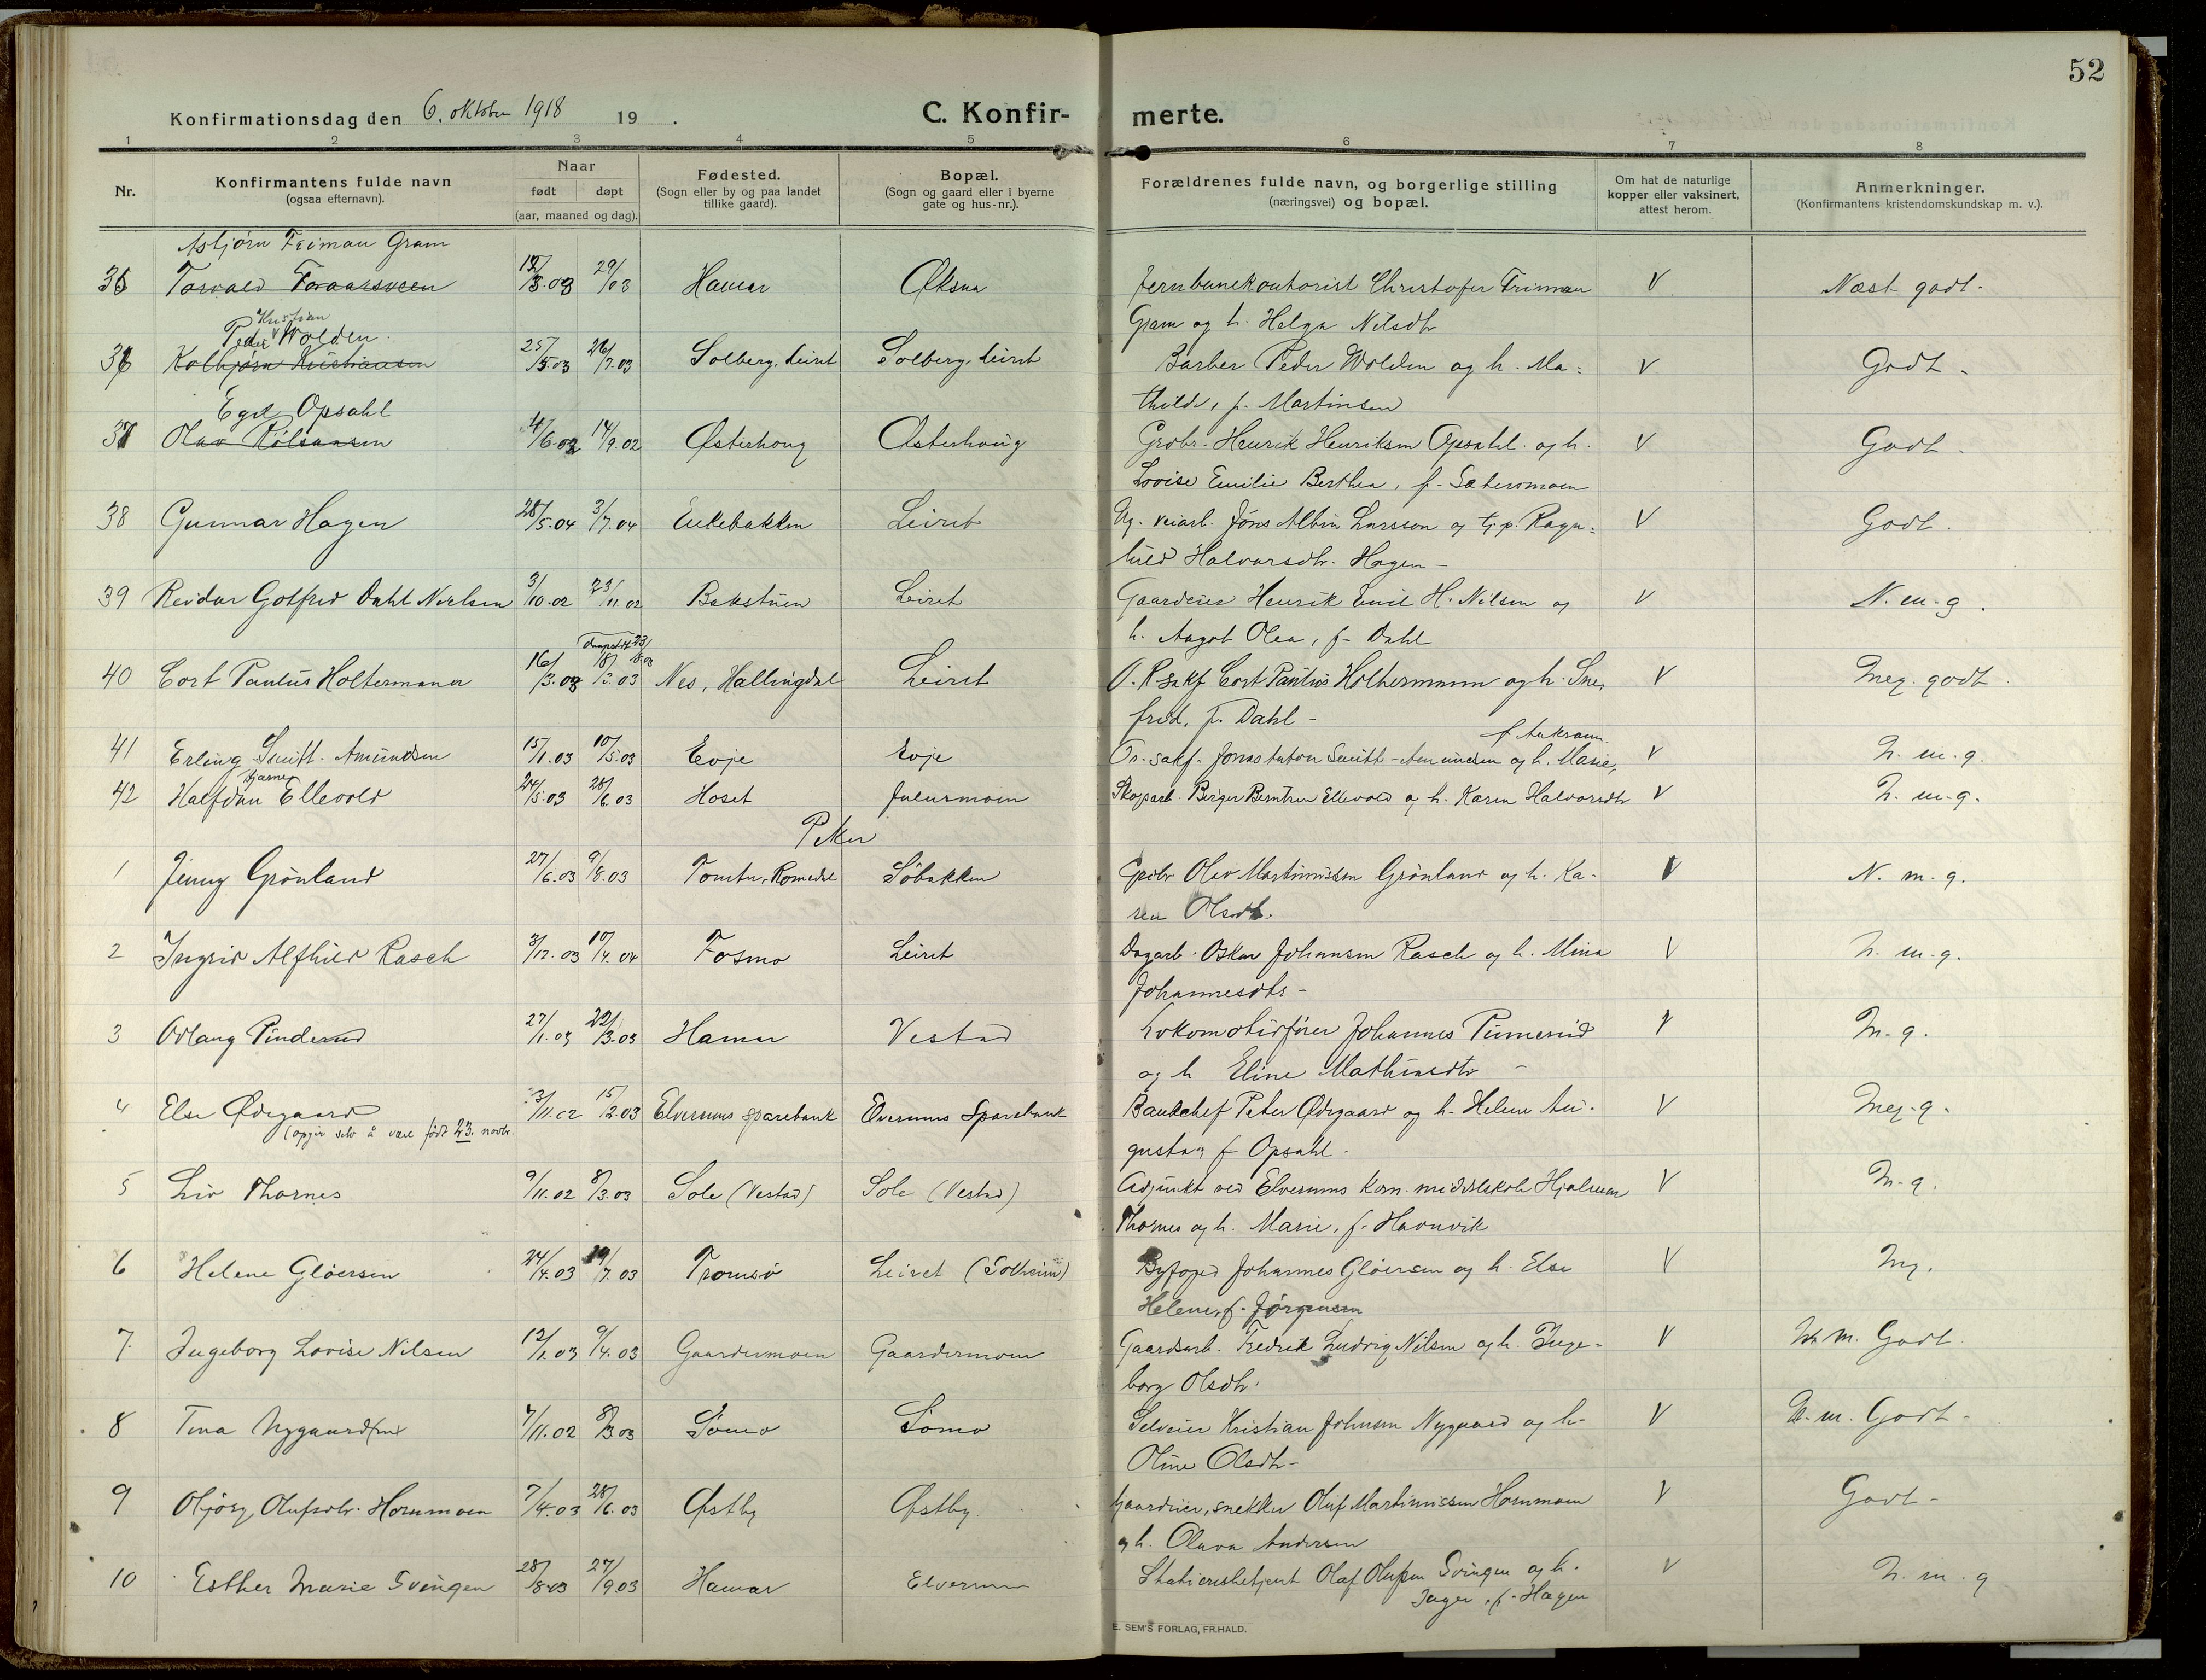 52
Konfirmationsdag den 6. oktober 1918 19 .
C. Konfir- merte.
1 2 3 4 5 6 7 8
Nr.
Konfirmantens fulde navn
(ogsaa efternavn).
Naar
født døpt
(aar, maaned og dag).
Fødested.
(Sogn eller by og paa landet
tillike gaard).
Bopæl.
(Sogn og gaard eller i byerne
gate og hus-nr.).
Forældrenes fulde navn, og borgerlige stilling
(næringsvei) og bopæl.
Om hat de naturlige
kopper eller vaksinert,
attest herom.
Anmerkninger.
(Konfirmantens kristendomskundskap m. v.).
Asbjørn Feiman Gram
35 29/ 03 Hamar Øksna Jernbanekontorist Christofer Frimann V Næst godt.
Gram og h. Helga Nilsdtr
Kristian
Peder Wolden.
36 Kolbjørn Kristiansen 25/5.03 26/7.03 Solberg, Leiret Solberg, Leiret Barber Peder Wolden og h. Ma- V Godt.
thilde, f. Martinsen
Egil Opsahl
37 Olav 4/6.02 14/9.02 Østerhaug Østerhaug Grdbr. Henrik Henriksen Opsahl og h. V Godt.
Lovise Emilie Berthea, f. Sætermoen
38 Gunnar Hagen 28/5.04 3/7.04 Enkebakken Leiret Ug. veiarb. Jöns Albin Larsson og tj.p. Ragn- V Godt.
hild Halvorsdtr. Hagen -
39 Reidar Gotfred Dahl Nielsen 3/10.02 23/11.02 Bakstuen Leiret Gaardeier Henrik Emil H. Nilsen og V N. m. g.
h. Aagot Olea, f. Dahl
40 Cort Paulus Holtermann 16/3.03 Nes, Hallingdal Leiret O. R. sakf. Cort Paulus Holtermann og h. Sne- V Meg. godt.
frid, f. Dahl -
41 Erling Smitt-Amundsen 15/1.03 10/5.03 Evje Evje Or. sakf. Jonas Anton Smitt-Amundsen og h. Marie, V N. m. g.
f. Ankrann
Bjarne
42 Halfdan Ellevold 24/5.03 28/6.03 Hoset Julusmoen Skogarb. Birger Berntsen Ellevold og h. Karen Halvorsdtr V N. m. g.
Piker
1 Jenny Grönland 27/6.03 9/8.03 Tomter, Romedal Söbakken Grdbr Olav Martiniussen Grönland og h. Ka- V N. m. g.
ren Olsdtr.
2 Ingrid Alfhild Rasch 3/12.03 10/4.04 Fosmo Leiret Dagarb. Oskar Johansen Rasch og h. Mina V N. m. g.
Johannesdtr -
3 Odlaug Pinderud 27/1.03 22/3.03 Hamar Vestad Lokomotivfører Johannes V M. g.
og h Eline Mathiasdtr -
4 Else Ødegaard 3/11.02 15/2.03 Elverums sparebank Elverums Sparebank Bankchef Peter Ødegaard og h. Helene Au- V Meg. g.
(opgir selv å være født 23. novbr.
gusta, f. Opsahl.
5 Liv Thornes 9/11.02 8/3.03 Sole (Vestad) Sole (Vestad) Adjunkt ved Elverums kom. middelskole Hjalmar V M. g.
Thornes og h. Marie, f. Havnvik
6 Helene Glöersen 24/4.03 19/7.03 Tromsö Leiret (Solheim) Byfoged Johannes Glöersen og h. Else V Mg.
Helene, f. Jørgensen
7 Ingeborg Lovise Nilsen 12/1.03 9/4.03 Gaardermoen Gaardermoen Gaardsarb. Fredrik Ludvig Nilsen og h. Inge- V N. m. Godt.
borg Olsdtr.
8 Tina Nygaard 7/11.02 8/3.03 Sömo Sömo Selveier Kristian Johnsen Nygaard og h. V N. m. Godt.
Oline Olsdtr-
9 Oljörg Olufsdtr. Hornmoen 7/4.03 28/6.03 Østby Østby. Gaardeier, snekker Oluf Martiniussen Hornmoen V Godt -
og h. Oluva Andersen
10 Esther Marie Svingen 28/8.03 27/9.03 Hamar Elverum Stationsbetjent Olaf Olufsen Svingen og h. V N. m. g
Inger, f. Hagen
E. SEM'S FORLAG, FR.HALD.